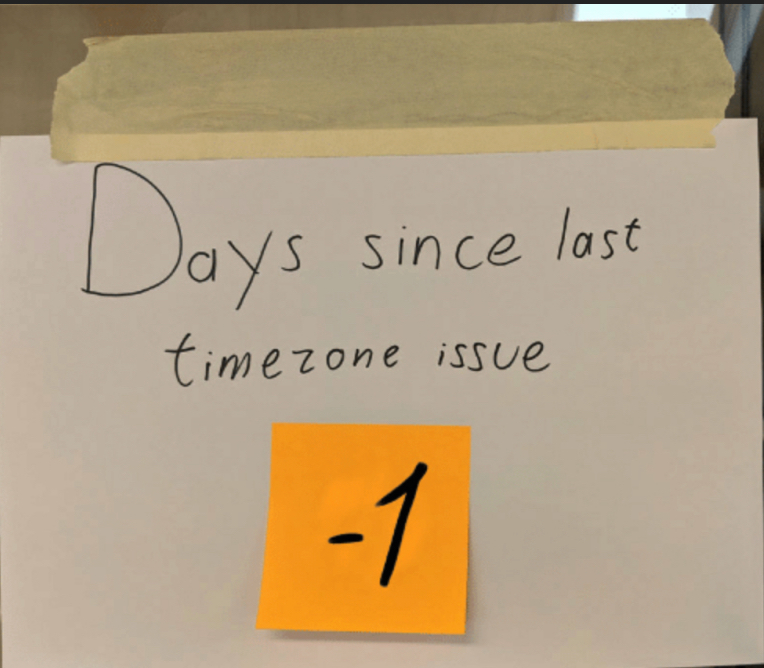 Days since last
timezone issue
-1